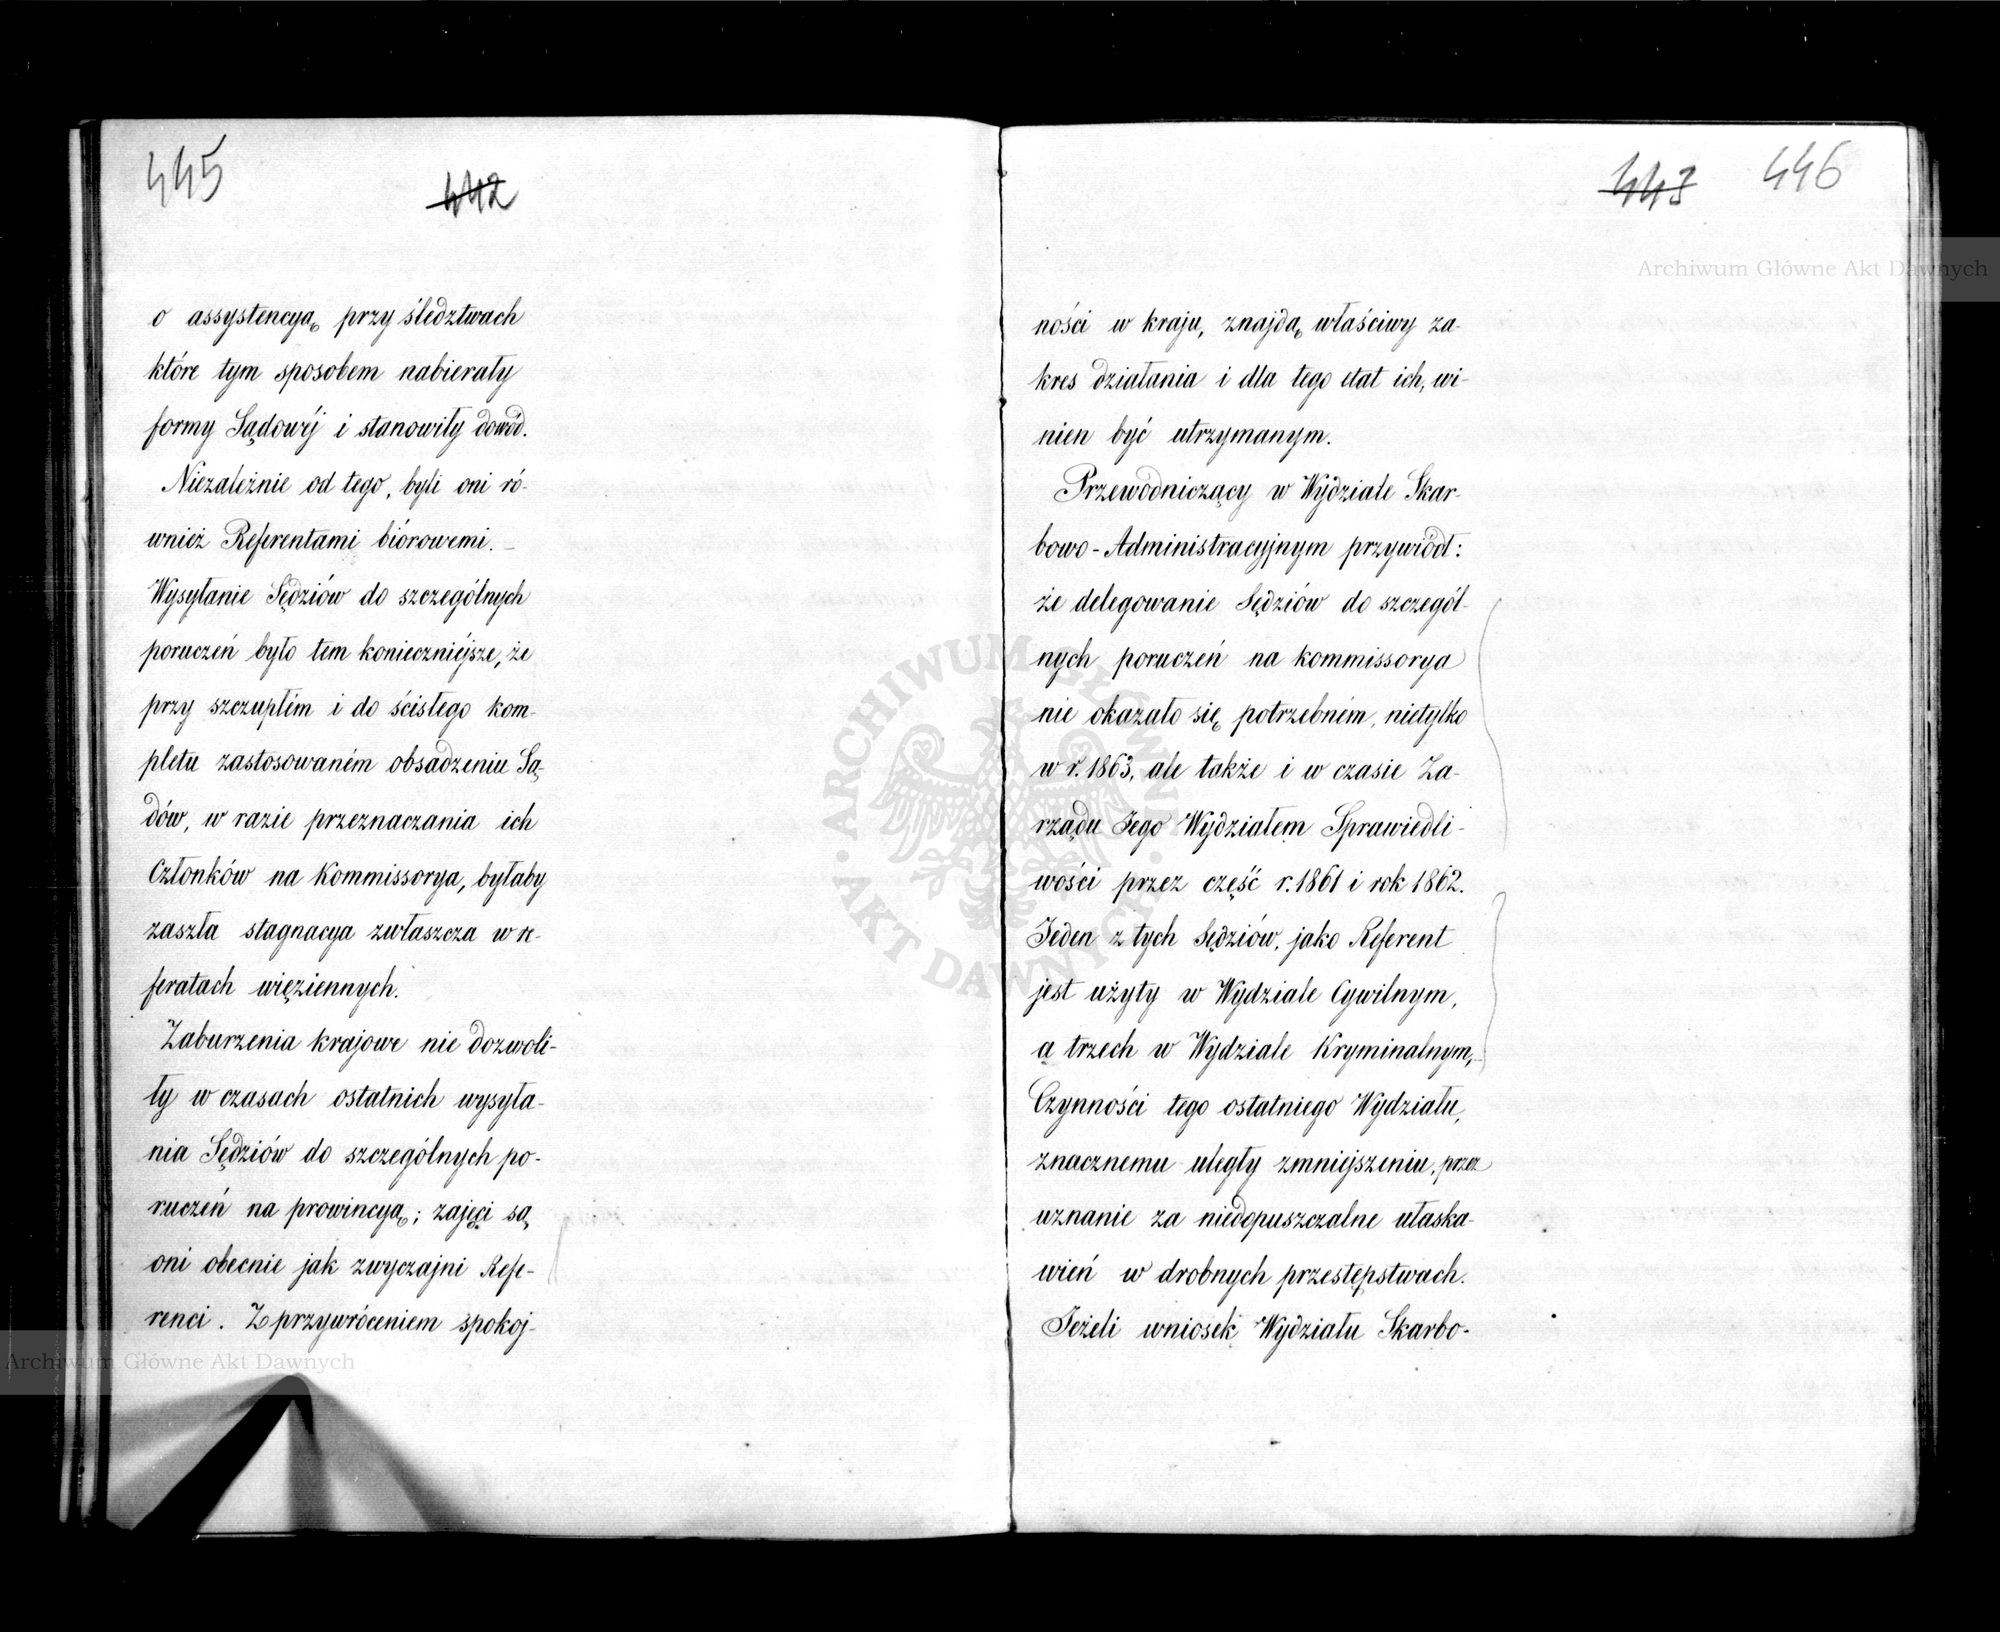 445
442
o assystencyą przy śledztwach
które tym sposobem nabierały
formy Sądowéj i stanowiły dowód.
Niezależnie od tego, byli oni ró-
wnież Referentami biórowemi. –
Wysyłanie Sędziów do szczególnych
poruczeń było tem konieczniéjsze, że
przy szczupłém i do ścisłego kom-
pletu zastosowaném obsadzeniu Są-
dów, w razie przeznaczania ich
Członków na Kommissorya, byłaby
zaszła stagnacya zwłaszcza w re-
feratach więziennych.
Zaburzenia krajowe nie dozwoli-
ły w czasach ostatnich wysyła-
nia Sędziów do szczególnych po-
ruczeń na prowincyą; zajęci są
oni obecnie jak zwyczajni Refe-
renci. Z przywróceniem spokoj-
443 446
ności w kraju, znajdą właściwy za-
kres działania i dla tego etat ich, wi-
nien być utrzymanym.
Przewodniczący w Wydziale Skar-
bowo-Administracyjnym przywiódł:
że delegowanie Sędziów do szczegól-
nych poruczeń na kommissorya
nie okazało się potrzebném, nietylko
w r. 1863, ale także i w czasie Za-
rządu Jego Wydziałem Sprawiedli-
wości przez część r. 1861 i rok 1862.
Jeden z tych Sędziów, jako Referent
jest użyty w Wydziale Cywilnym,
a trzech w Wydziale Kryminalnym,
Czynności tego ostatniego Wydziału,
znacznemu uległy zmniejszeniu, przez
uznanie za niedopuszczalne ułaska-
wień w drobnych przestępstwach.
Jeżeli wniosek Wydziału Skarbo-
Archiwum Główne Akt Dawnych
Archiwum Główne Akt Dawnych
ARCHIWUM GŁÓWNE AKT DAWNYCH